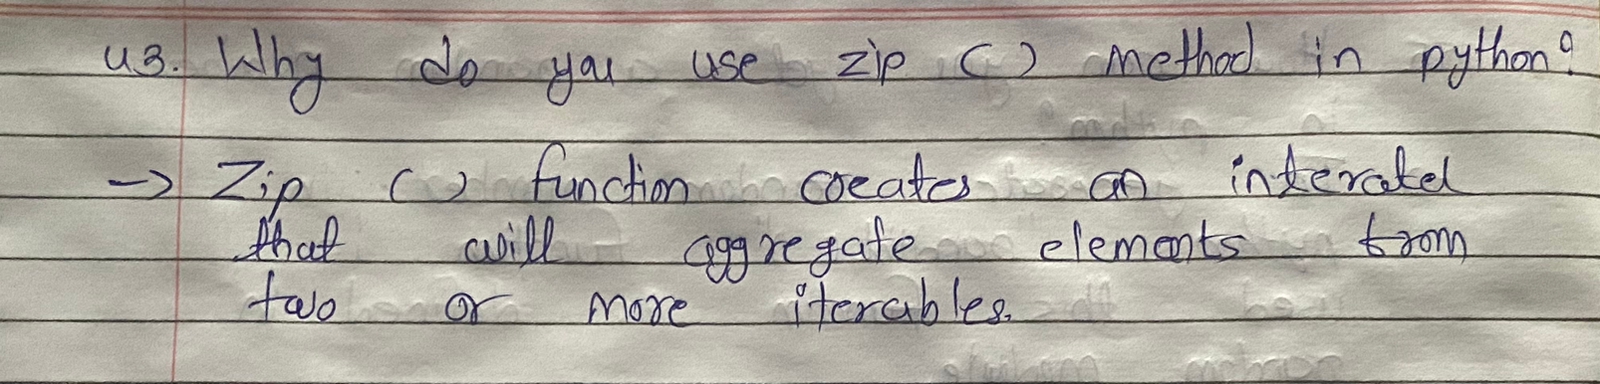 43. Why do you use zip () method in python?
→ Zip () function creates an interated
that will aggregate elements from
two or more iterables.